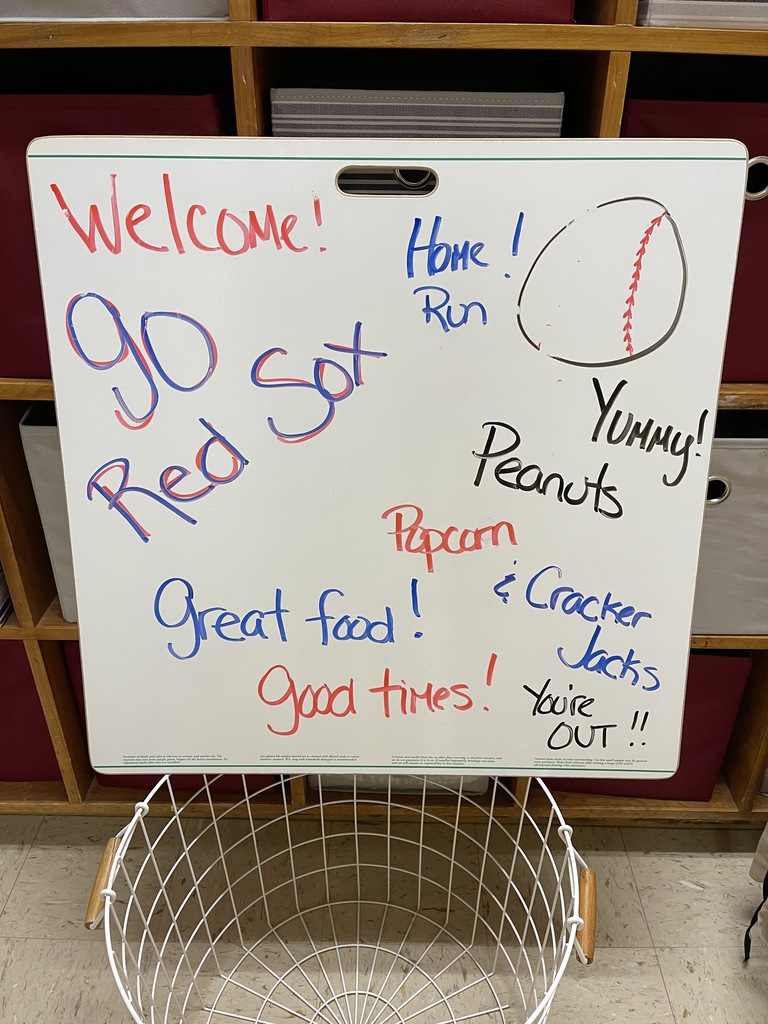 Welcome!
Home!
Run
go
Red Sox
Yummy!
Peanuts
Popcorn
& Cracker
Jacks
great food!
good times!
You're
OUT!!